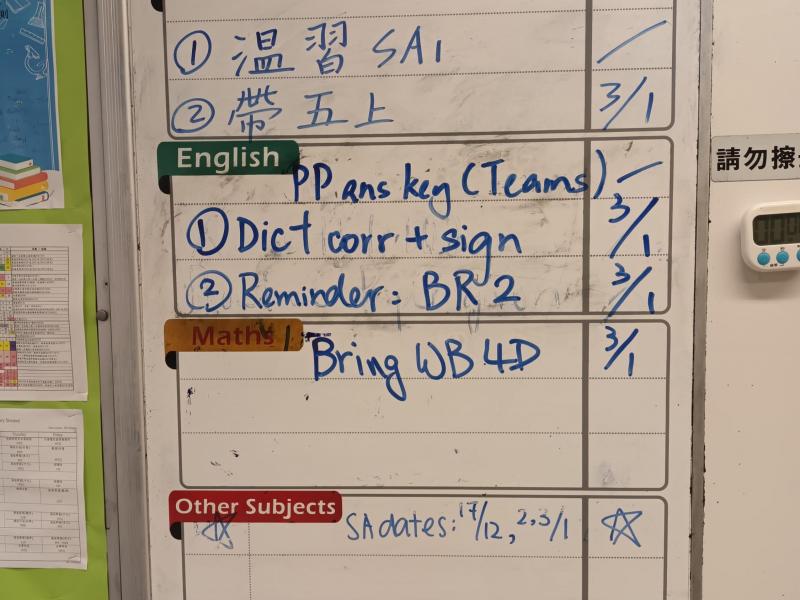 ① 溫習 SA1 /
② 帶五上 3/1
English
PP ans key (Teams) —
① Dict corr + sign 3/1
② Reminder: BR 2 3/1
Maths
Bring WB 4D 3/1
Other Subjects
☆ SA dates: 17/12, 2,3/1 ☆
請勿擦